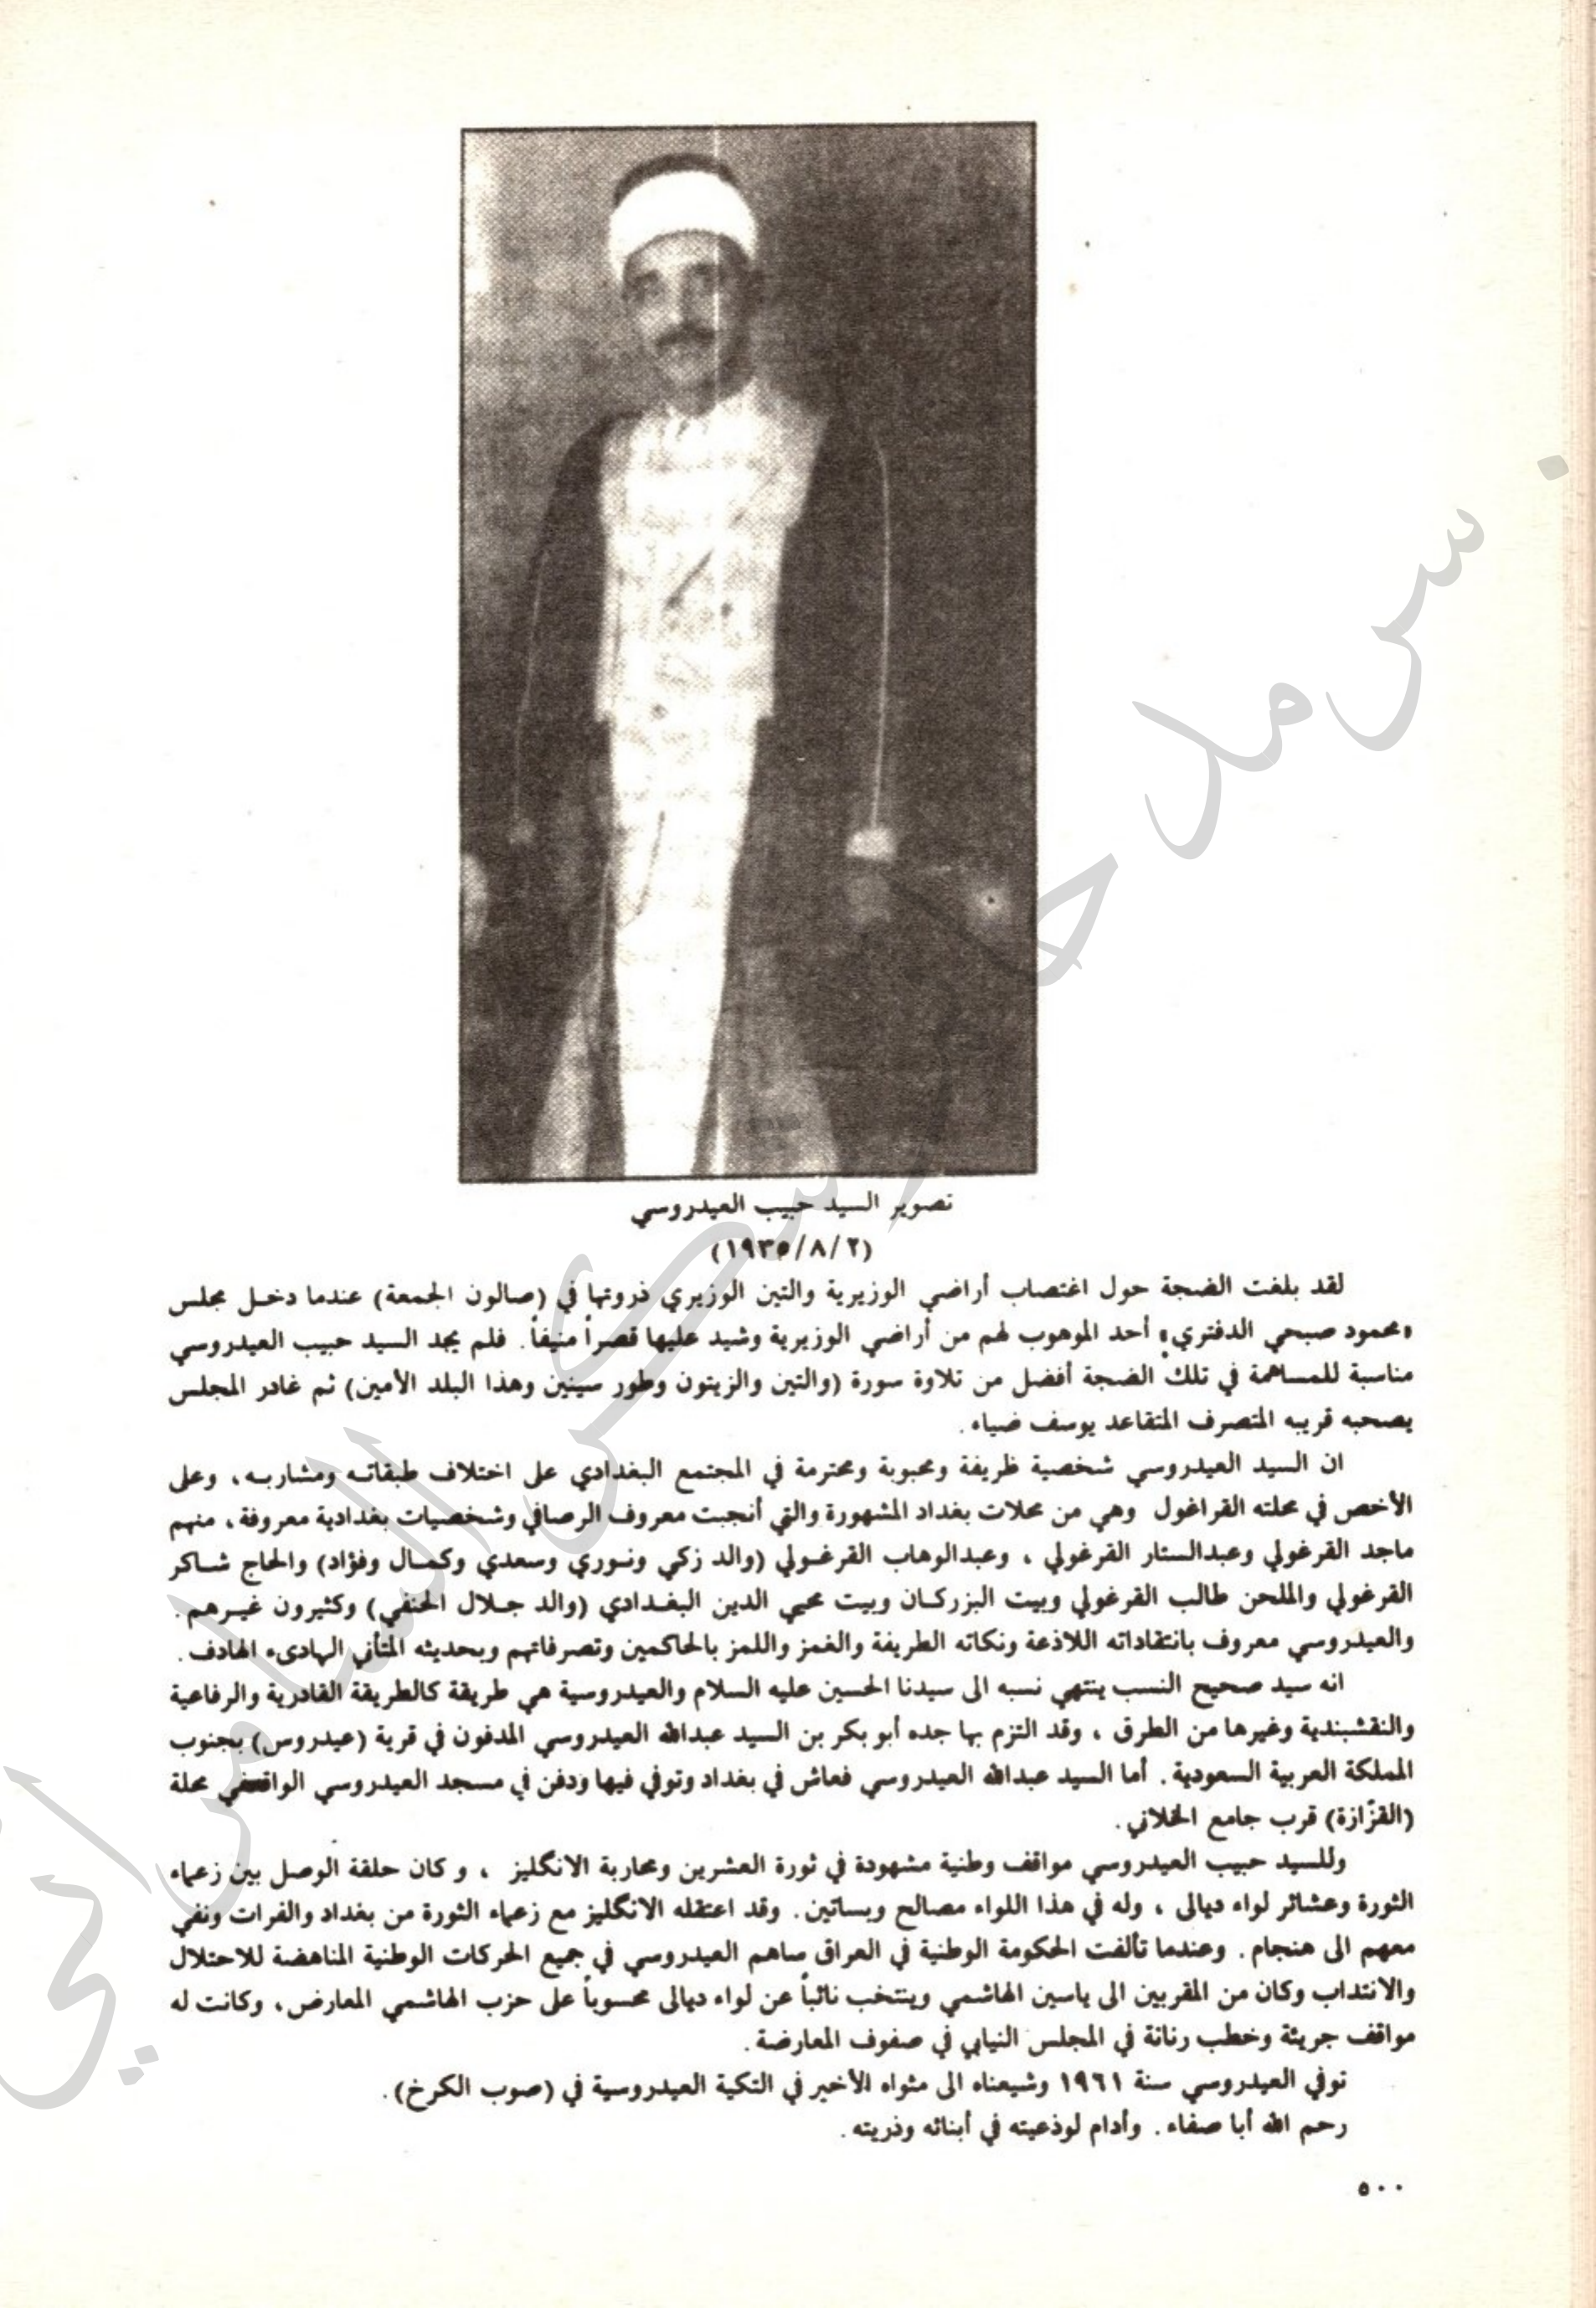 تصوير السيد حبيب العيدروسي
(١٩٣٥/٨/٢)
لقد بلغت الضجة حول اغتصاب أراضي الوزيرية والتين الوزيري ذروتها في (صالون الجمعة) عندما دخل مجلس
«محمود صبحي الدفتري» أحد الموهوب لهم من أراضي الوزيرية وشيد عليها قصراً منيفاً. فلم يجد السيد حبيب العيدروسي
مناسبة للمساهمة في تلك الضجة أفضل من تلاوة سورة (والتين والزيتون وطور سينين وهذا البلد الأمين) ثم غادر المجلس
يصحبه قريبه المتصرف المتقاعد يوسف ضياء.
ان السيد العيدروسي شخصية ظريفة ومحبوبة ومحترمة في المجتمع البغدادي على اختلاف طبقاته ومشاربه، وعلى
الأخص في محلته القراغول وهي من محلات بغداد المشهورة والتي أنجبت معروف الرصافي وشخصيات بغدادية معروفة، منهم
ماجد القرغولي وعبدالستار القرغولي ، وعبدالوهاب القرغولي (والد زكي ونوري وسعدي وكمال وفؤاد) والحاج شاكر
القرغولي والملحن طالب القرغولي وبيت البزركان وبيت محيي الدين البغدادي (والد جلال الحنفي) وكثيرون غيرهم.
والعيدروسي معروف بانتقاداته اللاذعة ونكاته الطريفة والغمز واللمز بالحاكمين وتصرفاتهم وبحديثه المتأني الهادىء الهادف.
انه سيد صحيح النسب ينتهي نسبه الى سيدنا الحسين عليه السلام والعيدروسية هي طريقة كالطريقة القادرية والرفاعية
والنقشبندية وغيرها من الطرق ، وقد التزم بها جده أبو بكر بن السيد عبدالله العيدروسي المدفون في قرية (عيدروس) بجنوب
المملكة العربية السعودية. أما السيد عبدالله العيدروسي فعاش في بغداد وتوفي فيها ودفن في مسجد العيدروسي الواقع في محلة
(القزّازة) قرب جامع الخلاني.
وللسيد حبيب العيدروسي مواقف وطنية مشهودة في ثورة العشرين ومحاربة الانكليز ، وكان حلقة الوصل بين زعماء
الثورة وعشائر لواء ديالى ، وله في هذا اللواء مصالح وبساتين. وقد اعتقله الانكليز مع زعماء الثورة من بغداد والفرات ونفي
معهم الى هنجام. وعندما تألفت الحكومة الوطنية في العراق ساهم العيدروسي في جميع الحركات الوطنية المناهضة للاحتلال
والانتداب وكان من المقربين الى ياسين الهاشمي وينتخب نائباً عن لواء ديالى محسوباً على حزب الهاشمي المعارض، وكانت له
مواقف جريئة وخطب رنانة في المجلس النيابي في صفوف المعارضة.
توفي العيدروسي سنة ١٩٦١ وشيعناه الى مثواه الأخير في التكية العيدروسية في (صوب الكرخ).
رحم الله أبا صفاء. وأدام لوذعيته في أبنائه وذريته.
٥٠٠